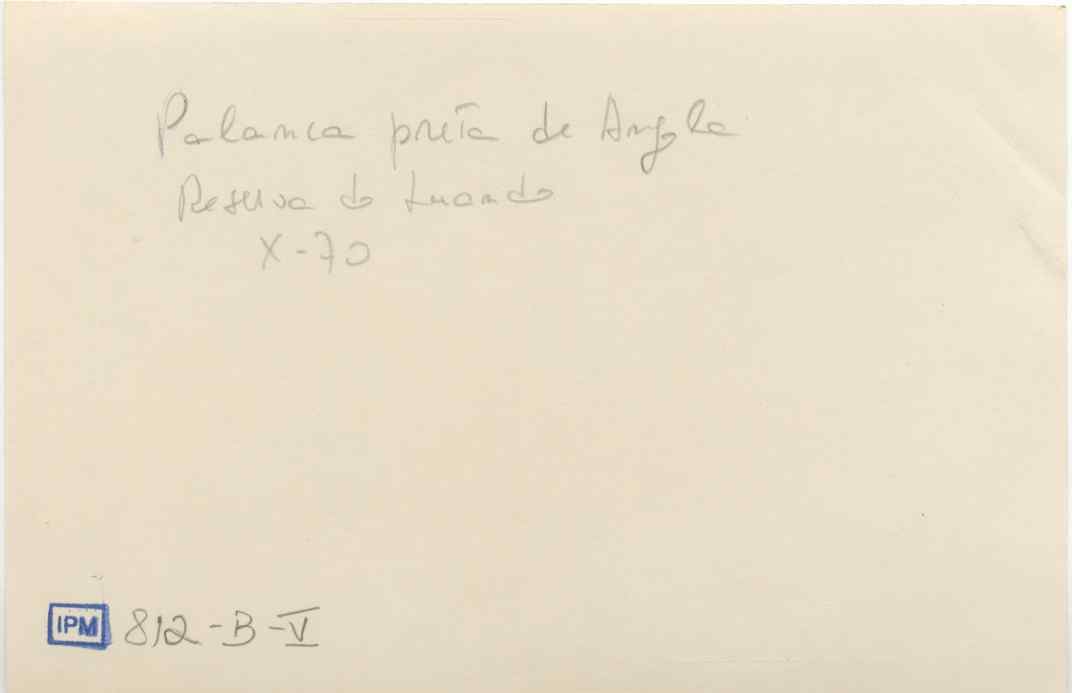 Palanca preta de Angola
Reserva do Luando
X-70
IPM 812-B-V